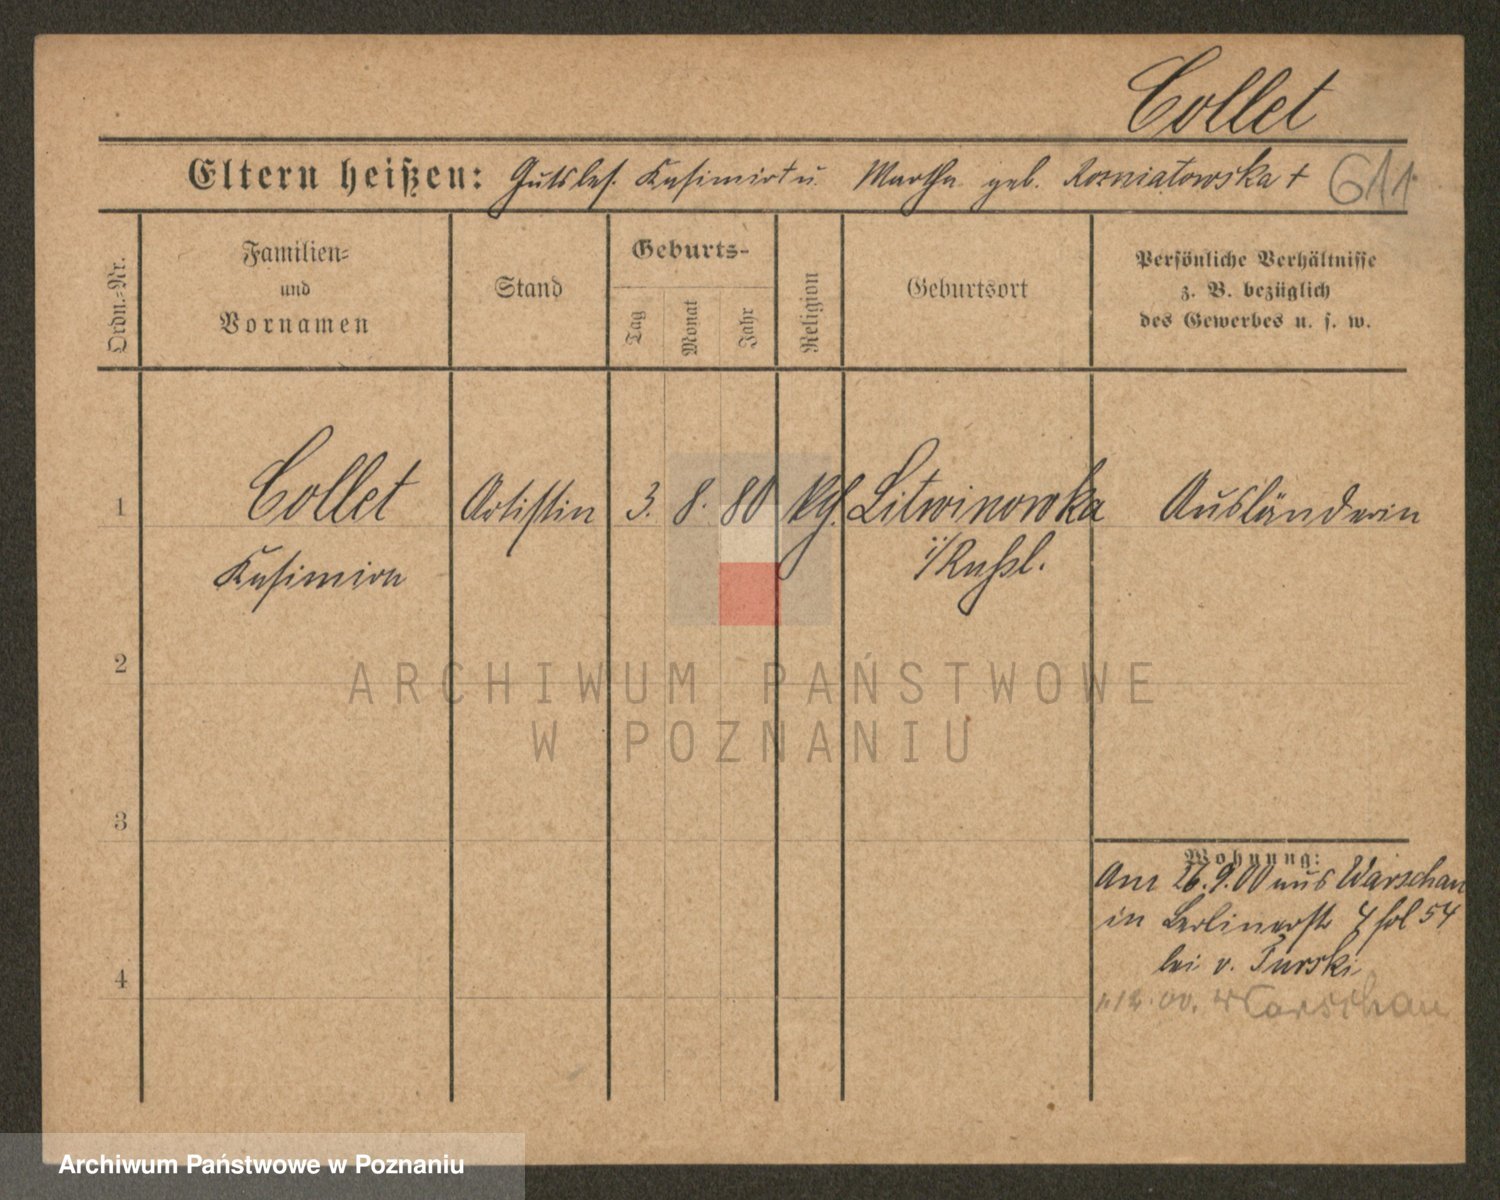 Collet
Eltern heißen: Gutsbes. Kasimir † u. Martha geb. Rozniatowska †
611
Ordn.=Nr.
Familien=
und
Vornamen
Stand
Geburts-
Tag
Monat
Jahr
Religion
Geburtsort
Persönliche Verhältnisse
z. B. bezüglich
des Gewerbes u. s. w.
1 Collet Artistin 3. 8. 80 kth. Litwinowka Ausländerin
Kasimira i/Russl.
2
3
4
Wohnung:
Am 26.9.00 aus Warschau
in Berlinerstr 4 fol 54
bei v. Turski
12.00. Warschau
ARCHIWUM PAŃSTWOWE
W POZNANIU
Archiwum Państwowe w Poznaniu